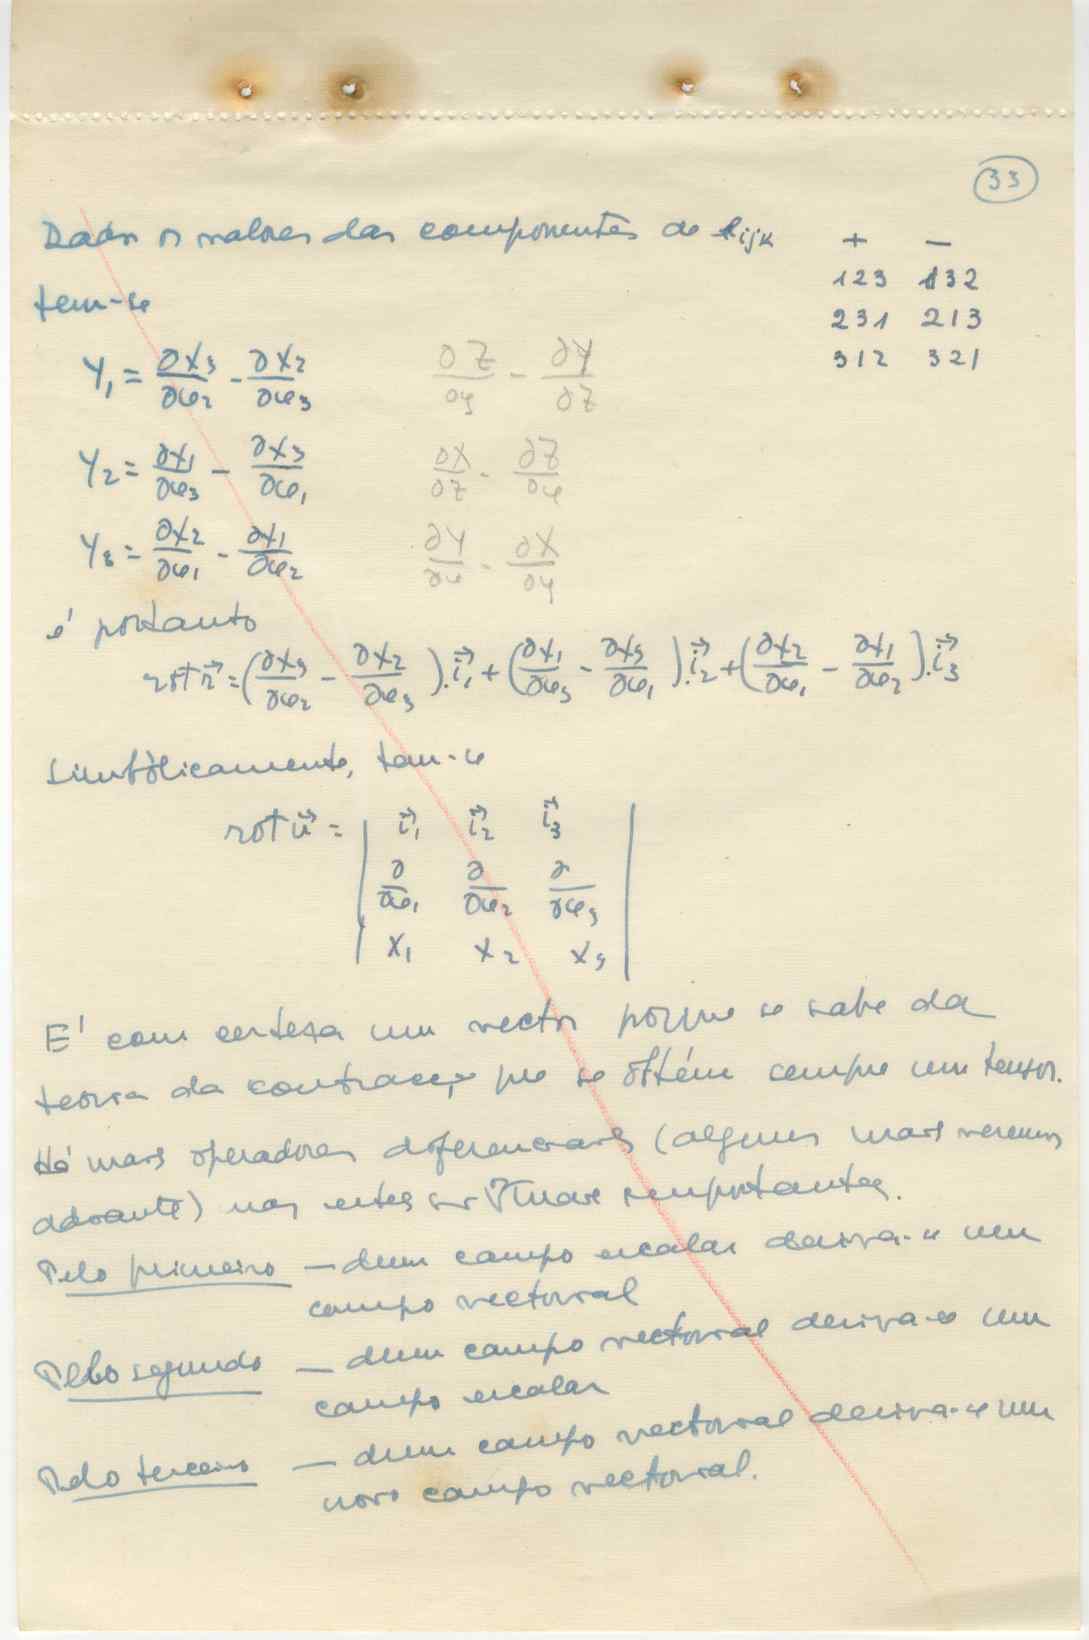 33
Dados os valores das componentes de εijk
+ −
123 132
231 213
312 321
tem-se
Y₁ = ∂X₃/∂x₂ - ∂X₂/∂x₃ ∂Z/∂y - ∂Y/∂Z
Y₂ = ∂X₁/∂x₃ - ∂X₃/∂x₁ ∂X/∂Z - ∂Z/∂x
Y₃ = ∂X₂/∂x₁ - ∂X₁/∂x₂ ∂Y/∂x - ∂X/∂y
é portanto
rot u⃗ = (∂X₃/∂x₂ - ∂X₂/∂x₃).i⃗₁ + (∂X₁/∂x₃ - ∂X₃/∂x₁).i⃗₂ + (∂X₂/∂x₁ - ∂X₁/∂x₂).i⃗₃
Simbòlicamente, tem-se
rot u⃗ = | i⃗₁ i⃗₂ i⃗₃ |
| ∂/∂x₁ ∂/∂x₂ ∂/∂x₃ |
| X₁ X₂ X₃ |
É com certeza um vector porque se sabe da
teoria da contracção que se obtém sempre um tensor.
Há mais operadores diferenciais (alguns mais veremos
adiante) mas estes são os mais importantes.
Pelo primeiro — dum campo escalar deriva-se um
campo vectorial
Pelo segundo — dum campo vectorial deriva-se um
campo escalar
Pelo terceiro — dum campo vectorial deriva-se um
novo campo vectorial.